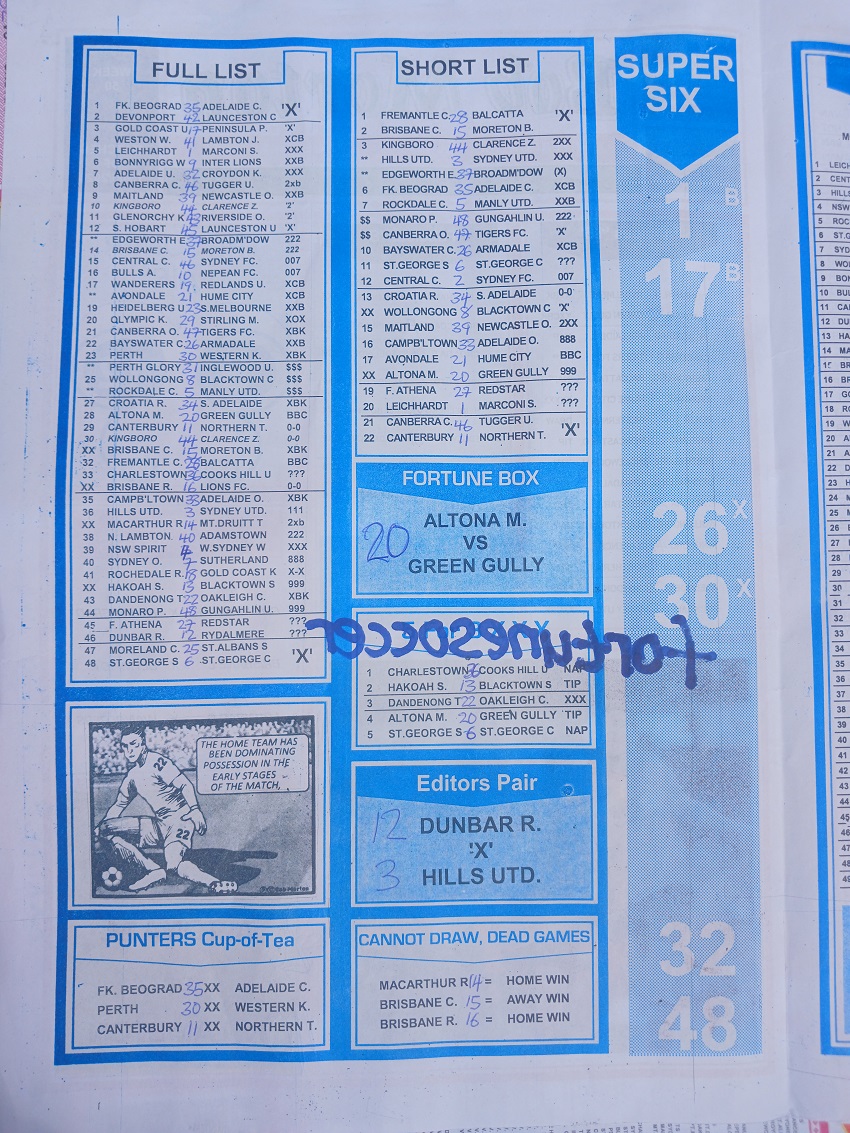 FULL LIST
1 FK. BEOGRAD 35 ADELAIDE C. 'X'
2 DEVONPORT 42 LAUNCESTON C
3 GOLD COAST U 17 PENINSULA P. 'X'
4 WESTON W. 41 LAMBTON J. XCB
5 LEICHHARDT 1 MARCONI S. XXX
6 BONNYRIGG W 9 INTER LIONS XXB
7 ADELAIDE U. 32 CROYDON K. XXX
8 CANBERRA C. 46 TUGGER U. 2xb
9 MAITLAND 39 NEWCASTLE O. XXB
10 KINGBORO 44 CLARENCE Z. '2'
11 GLENORCHY K 43 RIVERSIDE O. '2'
12 S. HOBART 45 LAUNCESTON U 'X'
** EDGEWORTH E 37 BROADM'DOW 222
14 BRISBANE C. 15 MORETON B. 222
15 CENTRAL C. 46 SYDNEY FC. 007
16 BULLS A. 10 NEPEAN FC. 007
17 WANDERERS 19 REDLANDS U. XCB
** AVONDALE 21 HUME CITY XCB
19 HEIDELBERG U 23 S.MELBOURNE XXB
20 OLYMPIC K. 29 STIRLING M. XOX
21 CANBERRA O. 47 TIGERS FC. XBK
22 BAYSWATER C 26 ARMADALE XXB
23 PERTH 30 WESTERN K. XBK
** PERTH GLORY 31 INGLEWOOD U. $$$
25 WOLLONGONG 8 BLACKTOWN C $$$
** ROCKDALE C. 5 MANLY UTD. $$$
27 CROATIA R. 34 S. ADELAIDE XBK
28 ALTONA M. 20 GREEN GULLY BBC
29 CANTERBURY 11 NORTHERN T. 0-0
30 KINGBORO 44 CLARENCE Z. 0-0
XX BRISBANE C. 15 MORETON B. XBK
32 FREMANTLE C. 28 BALCATTA BBC
33 CHARLESTOWN 36 COOKS HILL U ???
XX BRISBANE R. 16 LIONS FC. 0-0
35 CAMPB'LTOWN 33 ADELAIDE O. XBK
36 HILLS UTD. 3 SYDNEY UTD. 111
XX MACARTHUR R 14 MT.DRUITT T 2xb
38 N. LAMBTON 40 ADAMSTOWN 222
39 NSW SPIRIT 4 W.SYDNEY W XXX
40 SYDNEY O. 7 SUTHERLAND 888
41 ROCHEDALE R. 18 GOLD COAST K X-X
XX HAKOAH S. 13 BLACKTOWN S 999
43 DANDENONG T 22 OAKLEIGH C. XBK
44 MONARO P. 48 GUNGAHLIN U. 999
45 F. ATHENA 27 REDSTAR ???
46 DUNBAR R. 12 RYDALMERE ???
47 MORELAND C. 25 ST.ALBANS S 'X'
48 ST.GEORGE S 6 ST.GEORGE C
THE HOME TEAM HAS
BEEN DOMINATING
POSSESSION IN THE
EARLY STAGES
OF THE MATCH,
22
22
PUNTERS Cup-of-Tea
FK. BEOGRAD 35 XX ADELAIDE C.
PERTH 30 XX WESTERN K.
CANTERBURY 11 XX NORTHERN T.
SHORT LIST
1 FREMANTLE C. 28 BALCATTA 'X'
2 BRISBANE C. 15 MORETON B.
3 KINGBORO 44 CLARENCE Z. 2XX
** HILLS UTD. 3 SYDNEY UTD. XXX
** EDGEWORTH E 37 BROADM'DOW (X)
6 FK. BEOGRAD 35 ADELAIDE C. XCB
7 ROCKDALE C. 5 MANLY UTD. XXB
$$ MONARO P. 48 GUNGAHLIN U. 222
$$ CANBERRA O. 47 TIGERS FC. 'X'
10 BAYSWATER C. 26 ARMADALE XCB
11 ST.GEORGE S 6 ST.GEORGE C ???
12 CENTRAL C. 2 SYDNEY FC. 007
13 CROATIA R. 34 S. ADELAIDE 0-0
XX WOLLONGONG 8 BLACKTOWN C 'X'
15 MAITLAND 39 NEWCASTLE O. 2XX
16 CAMPB'LTOWN 33 ADELAIDE O. 888
17 AVONDALE 21 HUME CITY BBC
XX ALTONA M. 20 GREEN GULLY 999
19 F. ATHENA 27 REDSTAR ???
20 LEICHHARDT 1 MARCONI S. ???
21 CANBERRA C. 46 TUGGER U. 'X'
22 CANTERBURY 11 NORTHERN T.
FORTUNE BOX
20 ALTONA M.
VS
GREEN GULLY
fortunesoccer
1 CHARLESTOWN 36 COOKS HILL U NAP
2 HAKOAH S. 13 BLACKTOWN S TIP
3 DANDENONG T 22 OAKLEIGH C. XXX
4 ALTONA M. 20 GREEN GULLY TIP
5 ST.GEORGE S 6 ST.GEORGE C NAP
Editors Pair
12 DUNBAR R.
'X'
3 HILLS UTD.
CANNOT DRAW, DEAD GAMES
MACARTHUR R 14 = HOME WIN
BRISBANE C. 15 = AWAY WIN
BRISBANE R. 16 = HOME WIN
SUPER
SIX
1 B
17 B
26 X
30 X
32
48